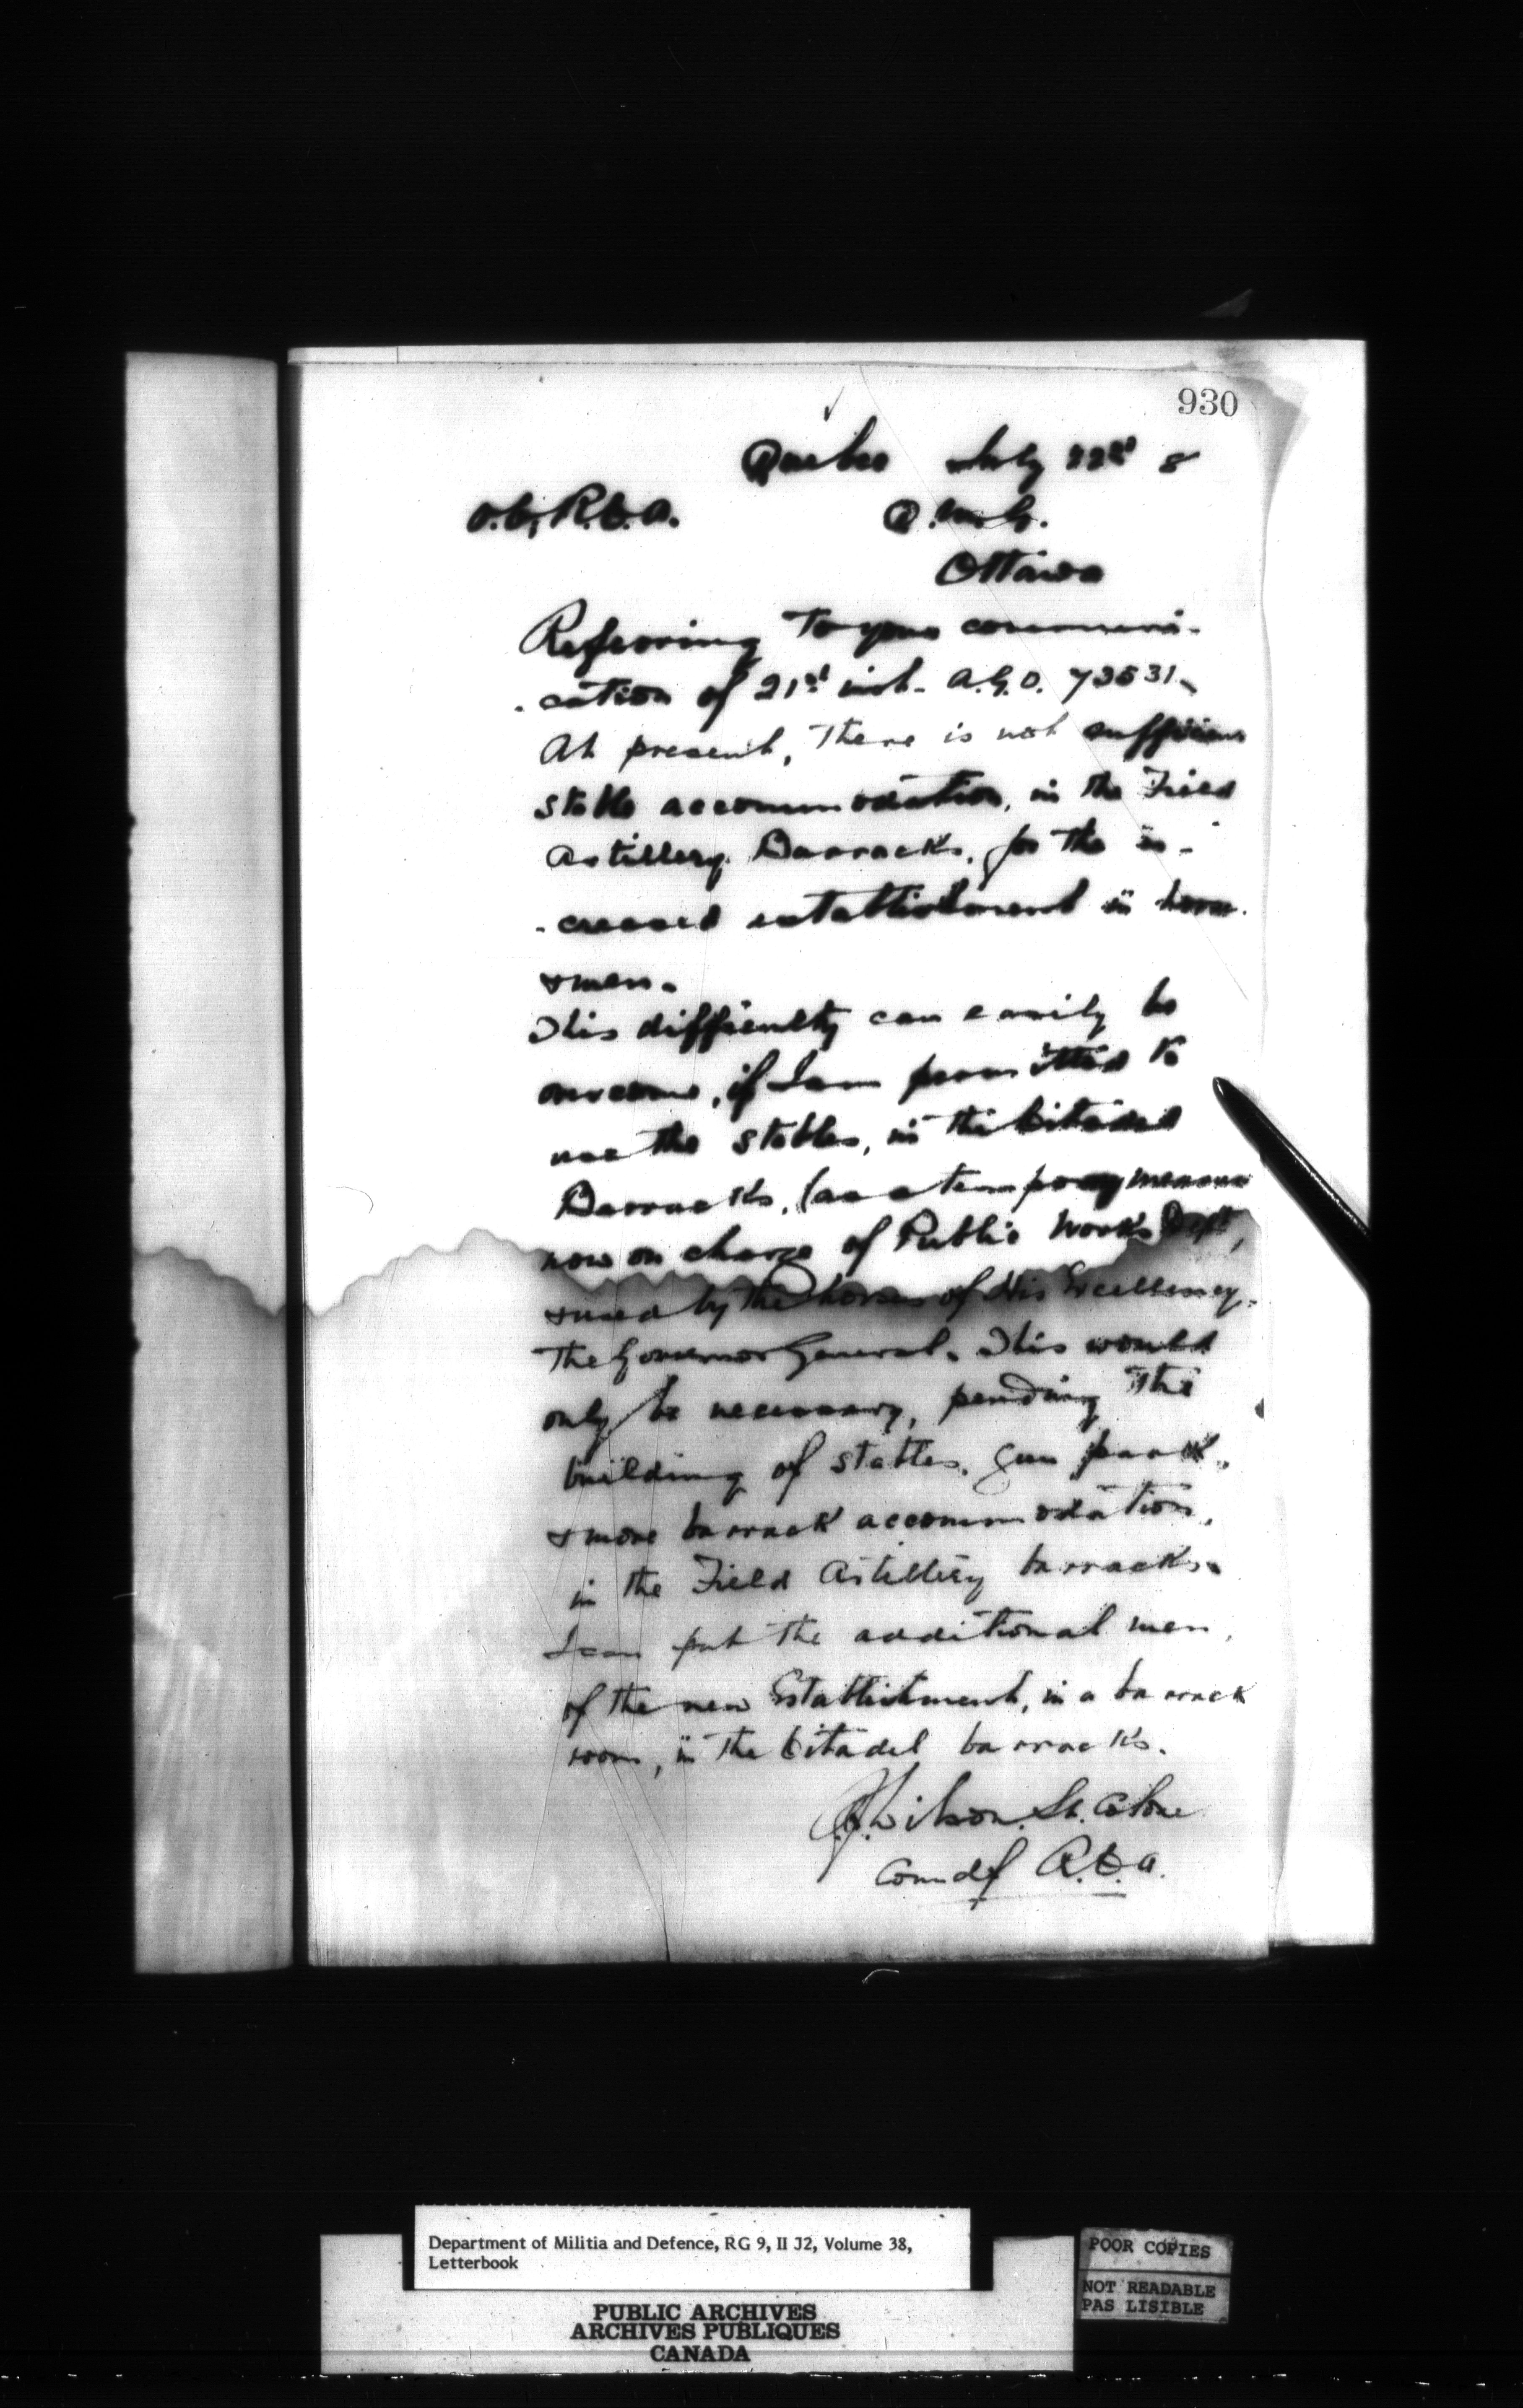 930
Quebec July 22nd 8
O.C. R.C.A. Q.M.G.
Ottawa
Referring to your communi-
-cation of 21st inst. A.G.O. 73531.
At present, there is not sufficient
stable accommodation, in the Field
Artillery Barracks, for the in-
-creased establishment in horses
& men.
This difficulty can easily be
overcome, if I am permitted to
use the stables, in the Citadel
Barracks, (as a temporary measure
now on charge of Public Works Dept,
& used by the horses of His Excellency.
The Governor General. This would
only be necessary, pending the
building of stables, gun park,
& more barrack accommodation,
in the Field Artillery barracks.
I can put the additional men,
of the new Establishment, in a barrack
room, in the Citadel barracks.
Wilson. Lt. Colone
Comdg R.C.A.
Department of Militia and Defence, RG 9, II J2, Volume 38,
Letterbook
POOR COPIES
NOT READABLE
PAS LISIBLE
PUBLIC ARCHIVES
ARCHIVES PUBLIQUES
CANADA